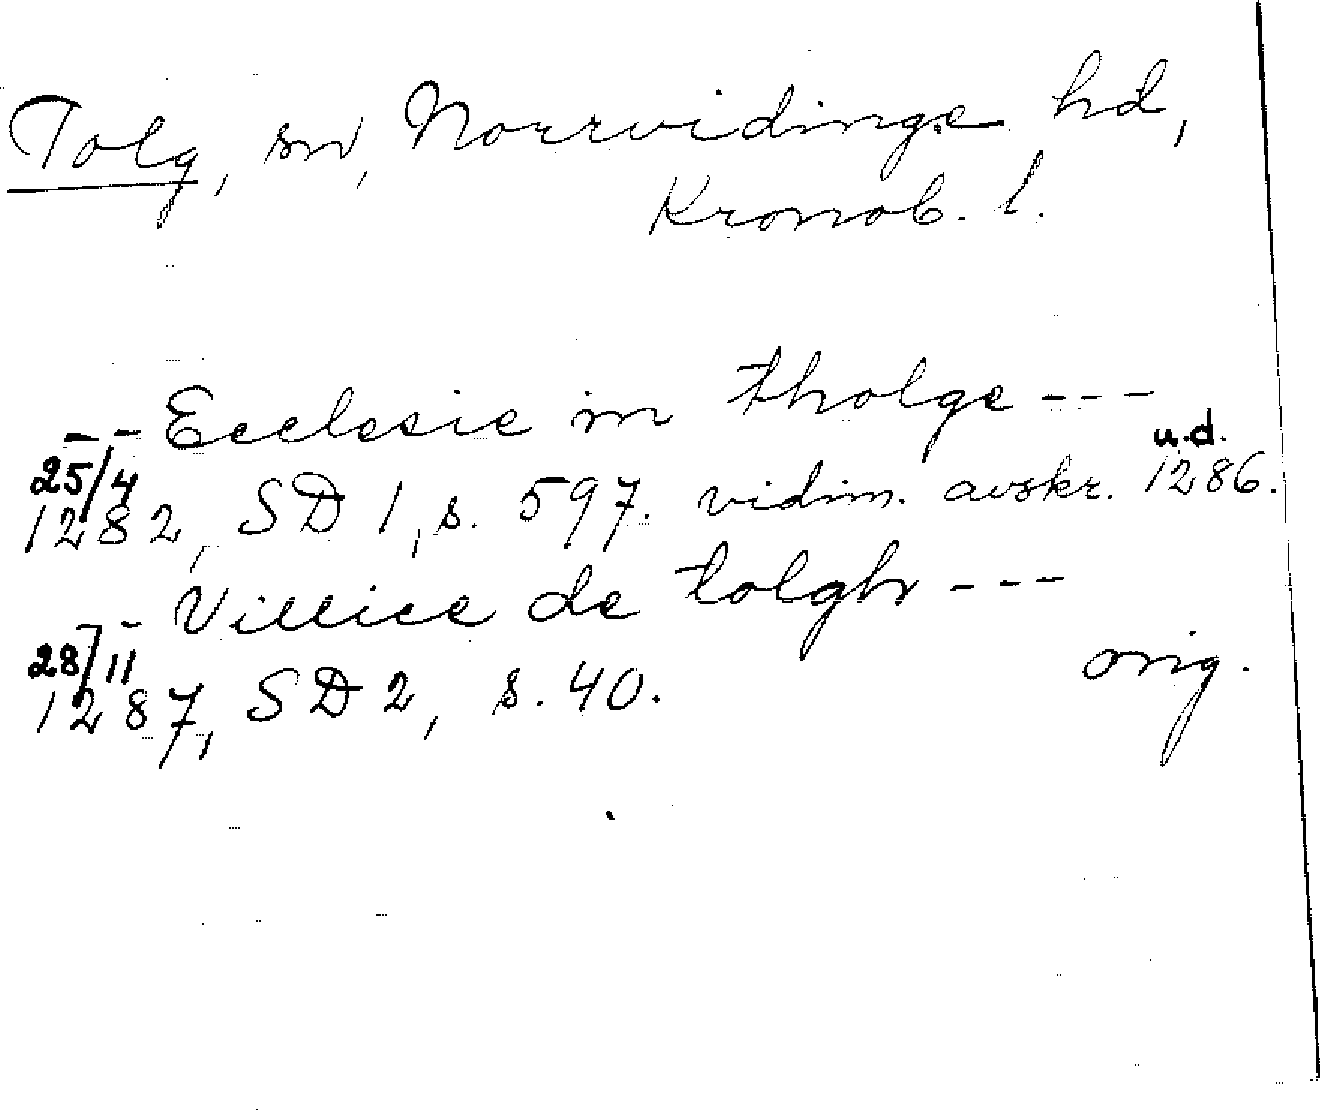 Tolg, sn, Norrvidinge hd,
Kronob. l.
-- Ecclesie in tholge ---
25/4 u.d.
1282, SD 1, s. 597. vidim. avskr. 1286.
-- Villice de tolgh ---
28/11 orig.
1287, SD 2, s. 40.